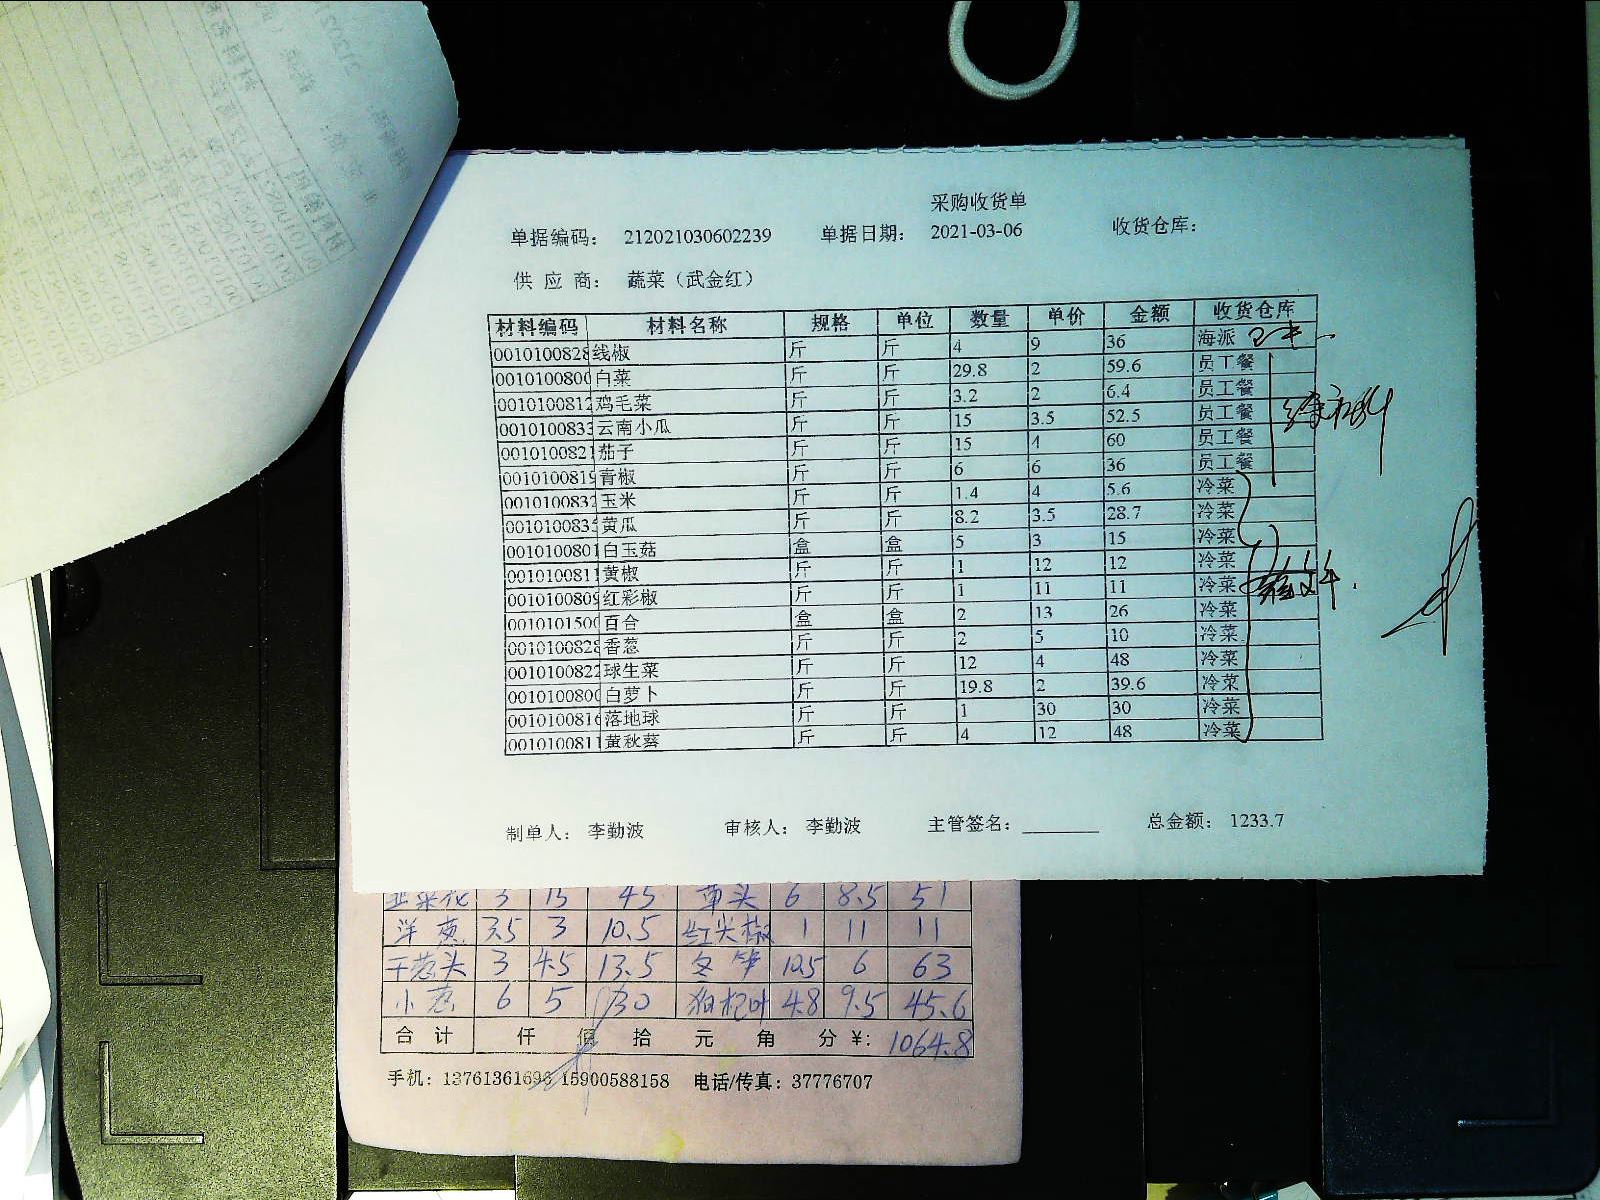 采购收货单
单据编码： 212021030602239 单据日期： 2021-03-06 收货仓库：
供 应 商： 蔬菜（武金红）
材料编码 材料名称 规格 单位 数量 单价 金额 收货仓库
0010100828 线椒 斤 斤 4 9 36 海派
0010100800 白菜 斤 斤 29.8 2 59.6 员工餐
0010100812 鸡毛菜 斤 斤 3.2 2 6.4 员工餐
0010100833 云南小瓜 斤 斤 15 3.5 52.5 员工餐
0010100821 茄子 斤 斤 15 4 60 员工餐
0010100819 青椒 斤 斤 6 6 36 员工餐
0010100832 玉米 斤 斤 1.4 4 5.6 冷菜
0010100835 黄瓜 斤 斤 8.2 3.5 28.7 冷菜
0010100801 白玉菇 盒 盒 5 3 15 冷菜
0010100811 黄椒 斤 斤 1 12 12 冷菜
0010100809 红彩椒 斤 斤 1 11 11 冷菜
0010101500 百合 盒 盒 2 13 26 冷菜
0010100828 香葱 斤 斤 2 5 10 冷菜
0010100822 球生菜 斤 斤 12 4 48 冷菜
0010100800 白萝卜 斤 斤 19.8 2 39.6 冷菜
0010100816 落地球 斤 斤 1 30 30 冷菜
0010100811 黄秋葵 斤 斤 4 12 48 冷菜
制单人： 李勤波 审核人： 李勤波 主管签名： 总金额： 1233.7
韭菜花 3 15 45 草头 6 8.5 51
洋葱 3.5 3 10.5 红尖椒 1 11 11
干葱头 3 4.5 13.5 冬笋 10.5 6 63
小葱 6 5 30 枸杞叶 4.8 9.5 45.6
合 计 仟 佰 拾 元 角 分 ¥: 1064.8
手机：13761361696 15900588158 电话/传真：37776707